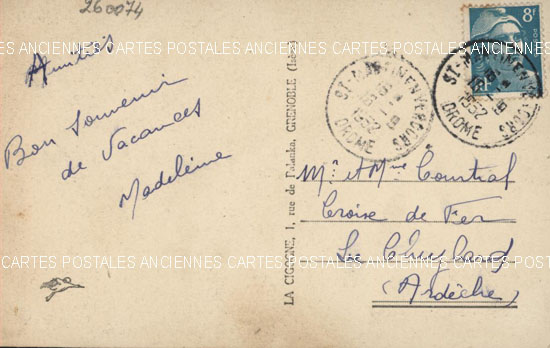 260074
Amitiés
Bon Souvenir
de Vacances
Madeleine
LA CIGOGNE, 1, rue de Palanka, GRENOBLE (Isère)
8F
ST-MARTIN-EN-VERCORS
1952
DROME
ST-MARTIN-EN-VERCORS
1952
DROME
Mr et Mme Courtial
Croix de Fer
Le Cheylard
(Ardèche)
CARTES POSTALES ANCIENNES CARTES POSTALES ANCIENNES CARTES POSTALES ANCIENNES
CARTES POSTALES ANCIENNES CARTES POSTALES ANCIENNES CARTES POSTALES ANCIENNES